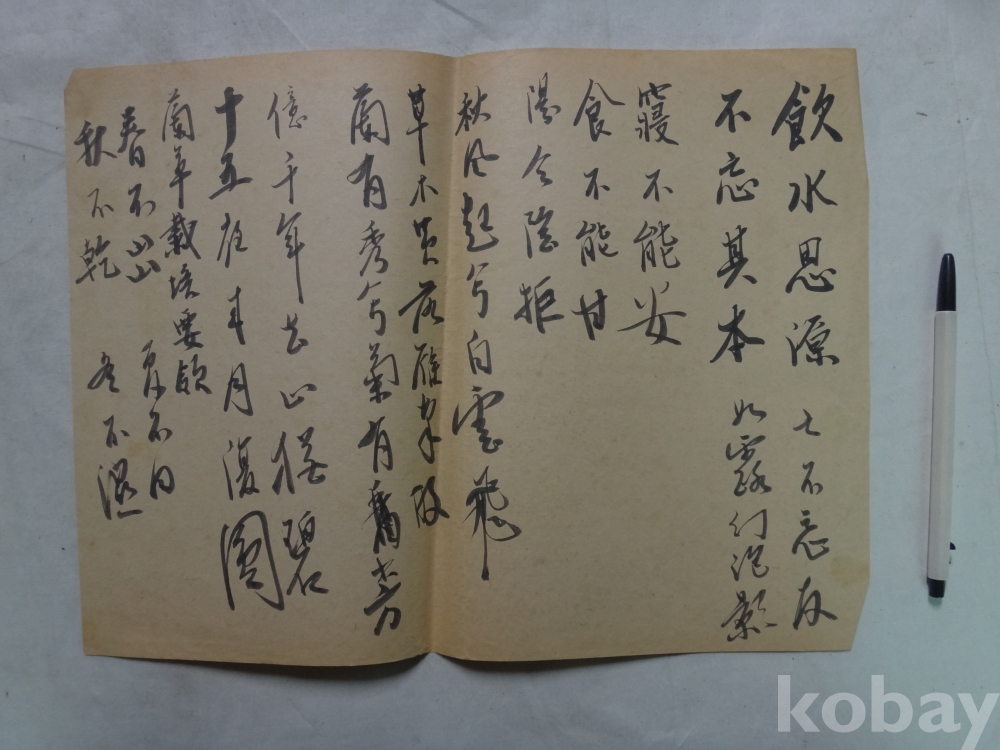 飲水思源 亡不忘存
不忘其本 如露幻泡影
寢不能安
食不能甘
陽今陰拒
秋風起兮白雲飛
草木黄落雁
蘭有秀兮菊有舊芳
億千年山猶碧
十五夜月復圓
蘭草栽培要領
春不出 夏不日
秋不乾 冬不濕
kobay